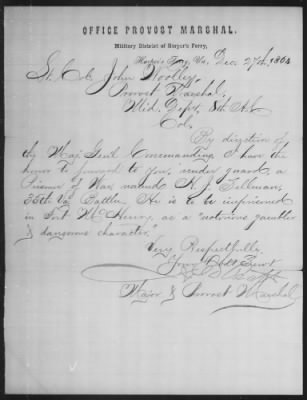 OFFICE PROVOST MARSHAL,
Military District of Harper's Ferry,
Harper's Ferry, Va. Dec. 27th, 1864
Lt. Col. John Woolley,
Provost Marshal,
Mid. Dept. 8th A.C.
Col.
By direction of
the Maj. Genl. Commanding I have the
honor to forward to you, under guard, a
Prisoner of War, named
35th Va. Battln. He is to be imprisoned
in Fort McHenry, as a "notorious guerilla
& dangerous character."
Very Respectfully,
Your Obdt Servt
Major & Provost Marshal